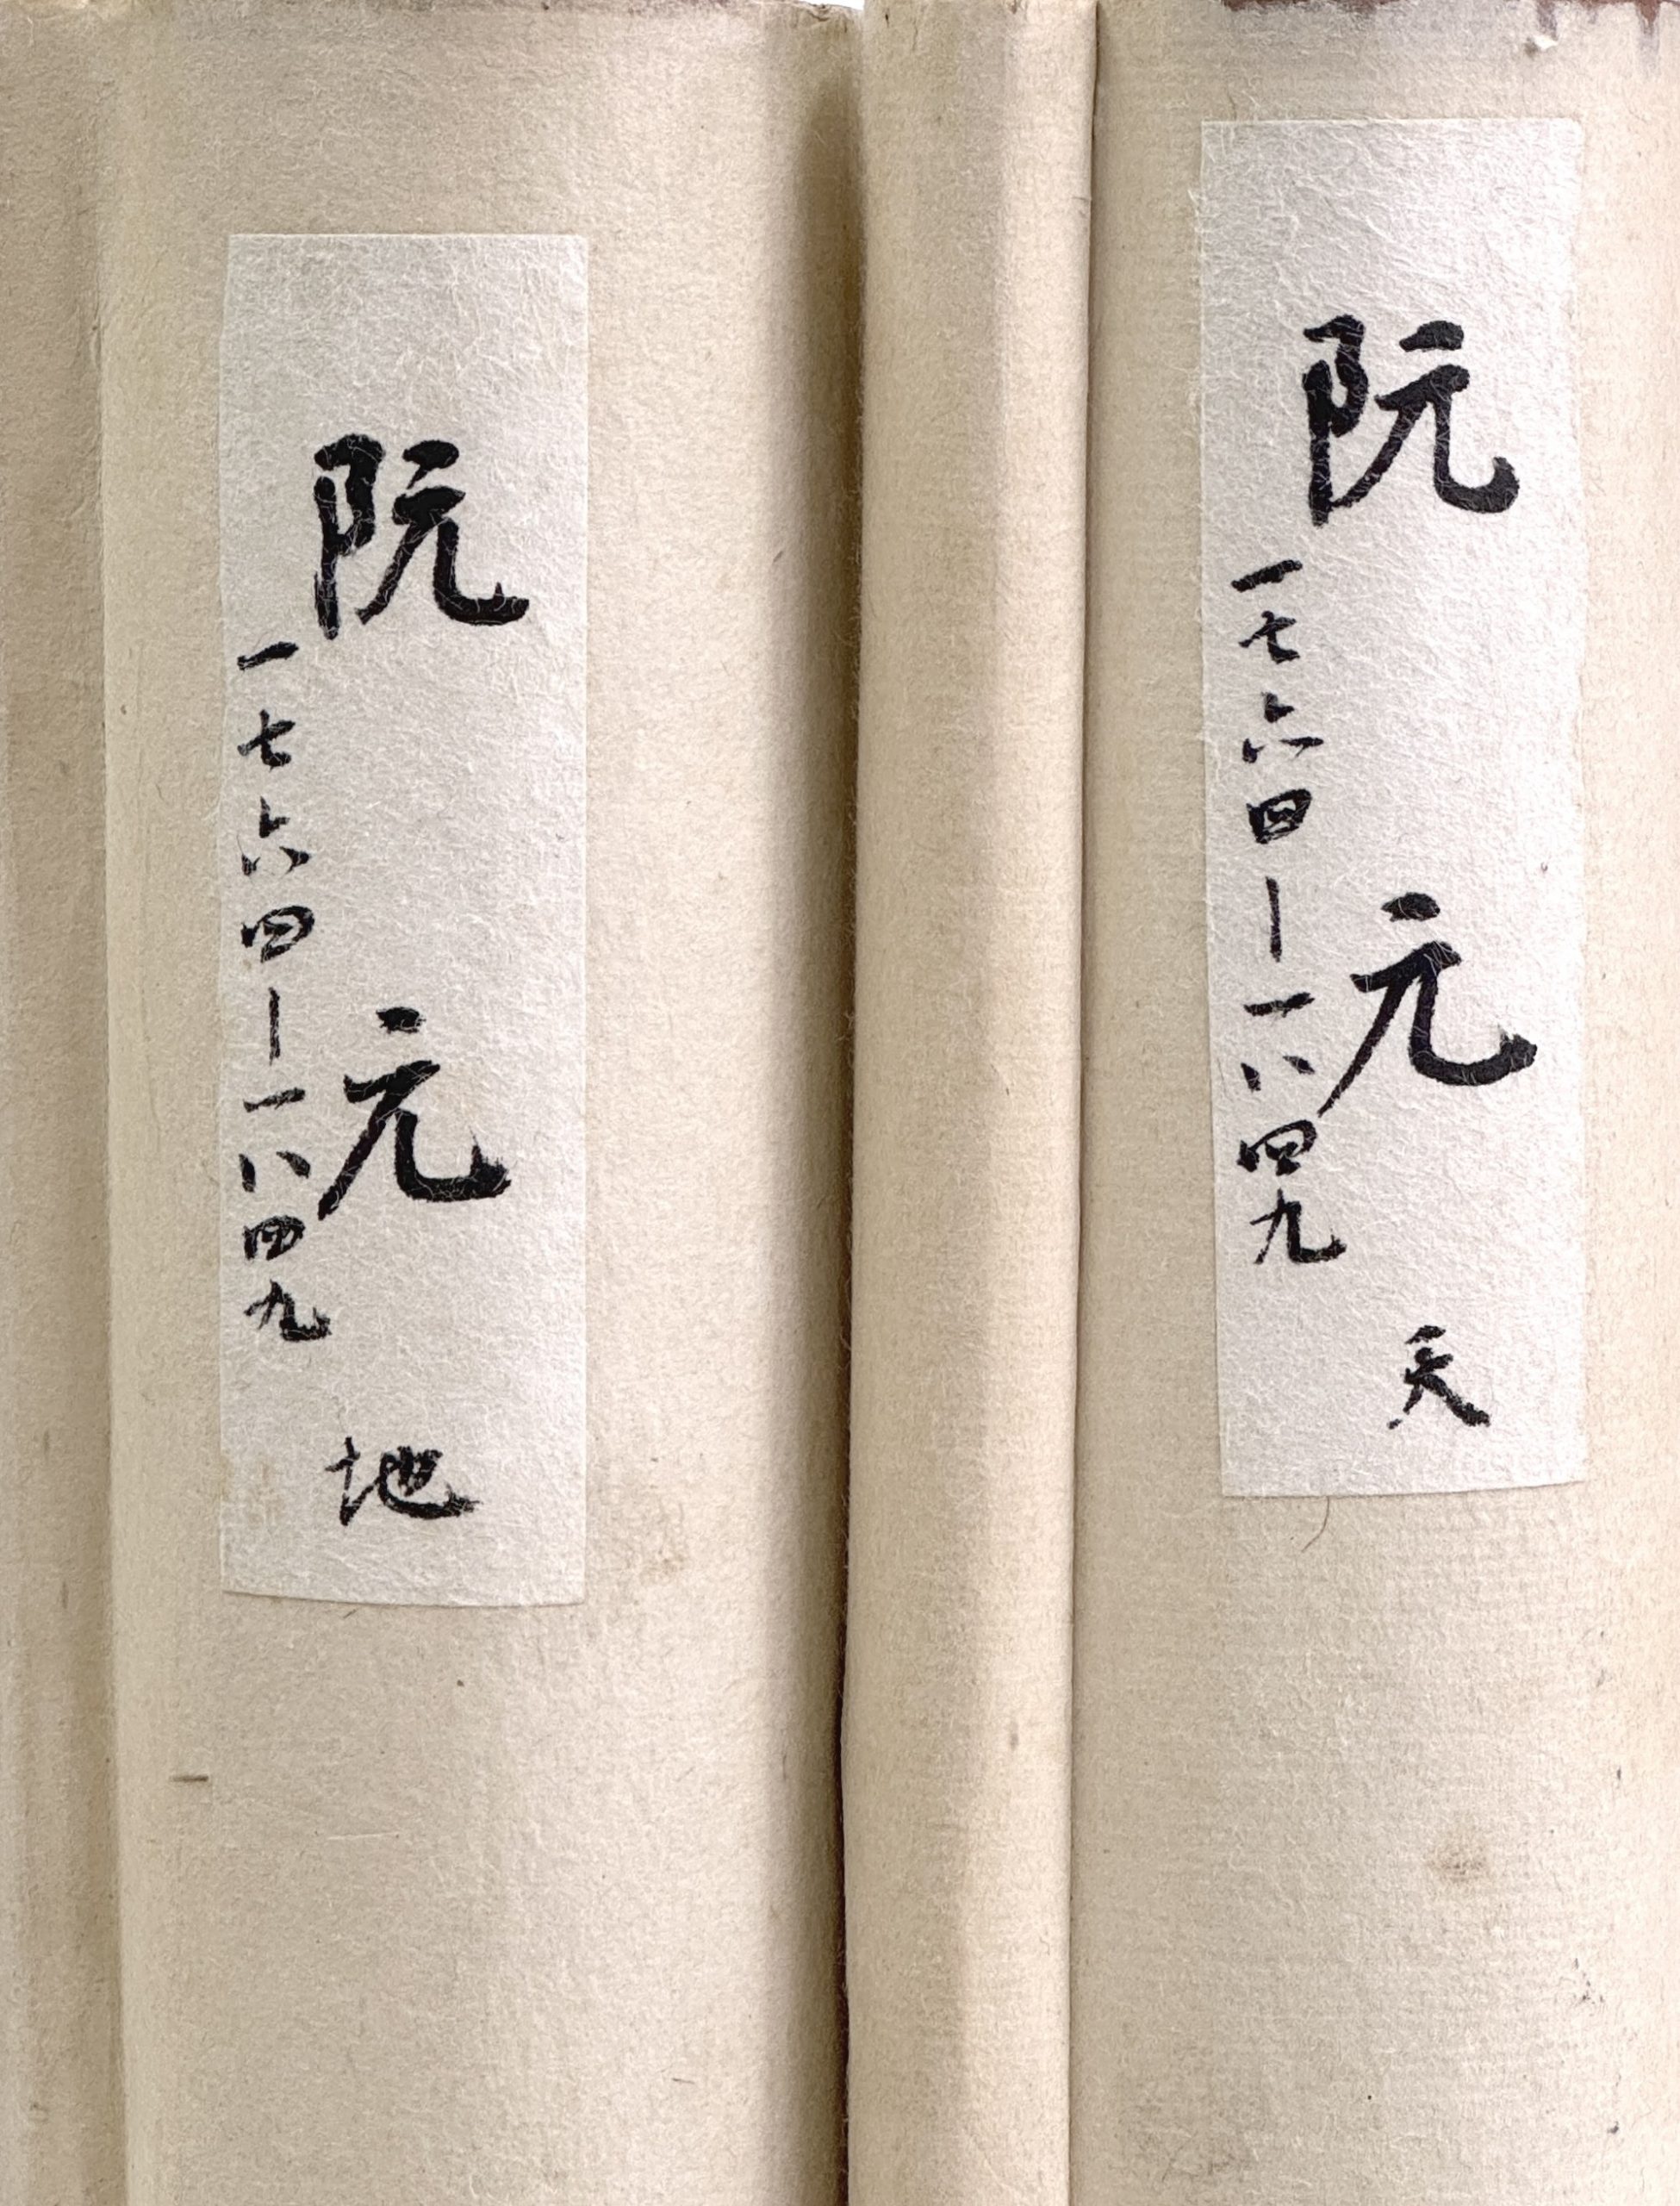 阮元
一七六四—一八四九
天
阮元
一七六四—一八四九
地